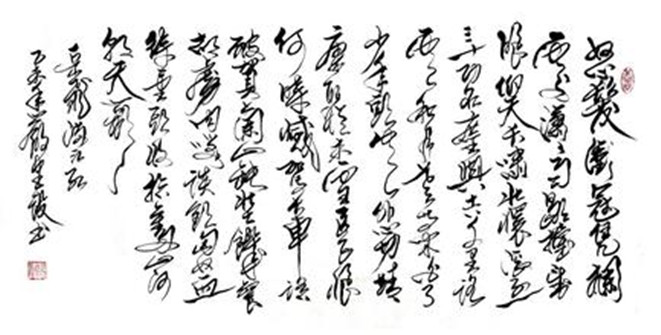 怒髮衝冠憑欄
處瀟瀟雨歇擡望
眼仰天長嘯壯懷激烈
三十功名塵與土八千里路
雲和月莫等閒白了
少年頭空悲切靖
康恥猶未雪臣子恨
何時滅駕長車踏
破賀蘭山缺壯志飢餐
胡虜肉笑談渴飲匈奴血
待從頭收拾舊山河
朝天闕
岳飛滿江紅
乙未年書